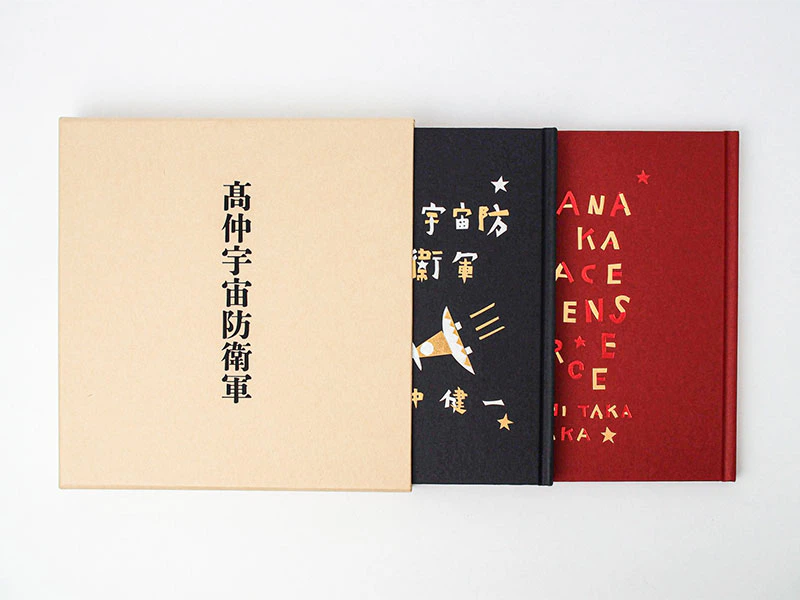 髙仲宇宙防衛軍
宇宙防
衛軍
仲健一
ANA
KA
ACE
ENS
R★E
OCE
HI TAKA
AKA★